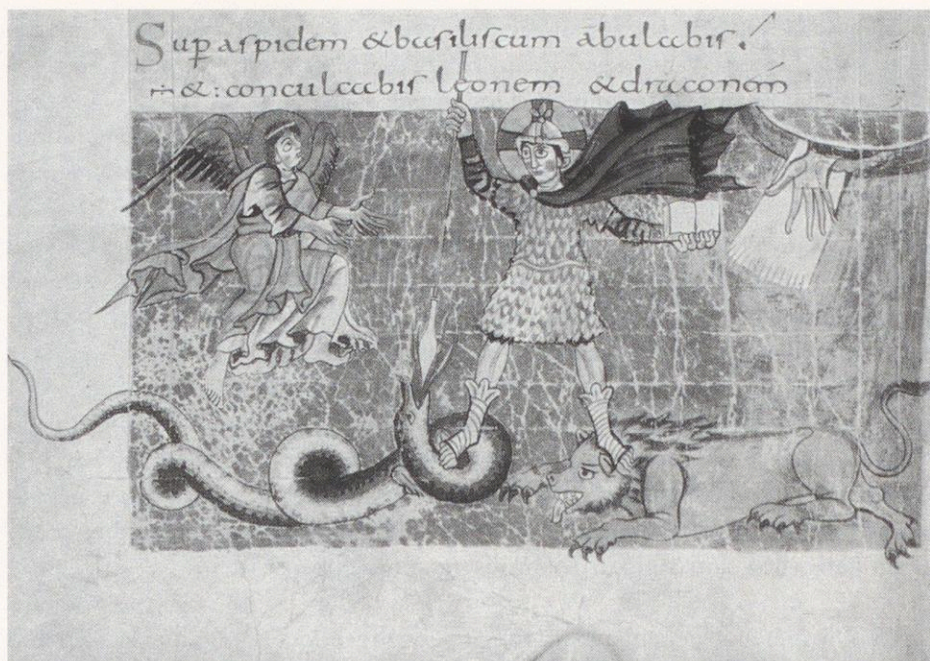 Sup aspidem & basiliscum abulabis.
& : conculcabis leonem & draconem